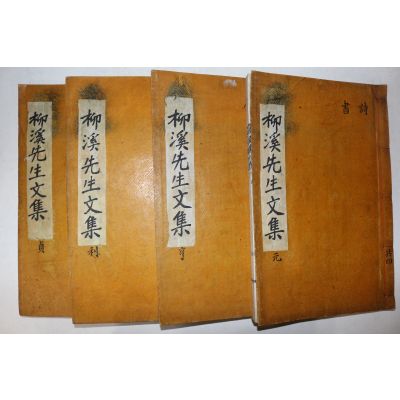 柳溪先生文集 元
詩
書
共四
柳溪先生文集 亨
柳溪先生文集 利
柳溪先生文集 貞